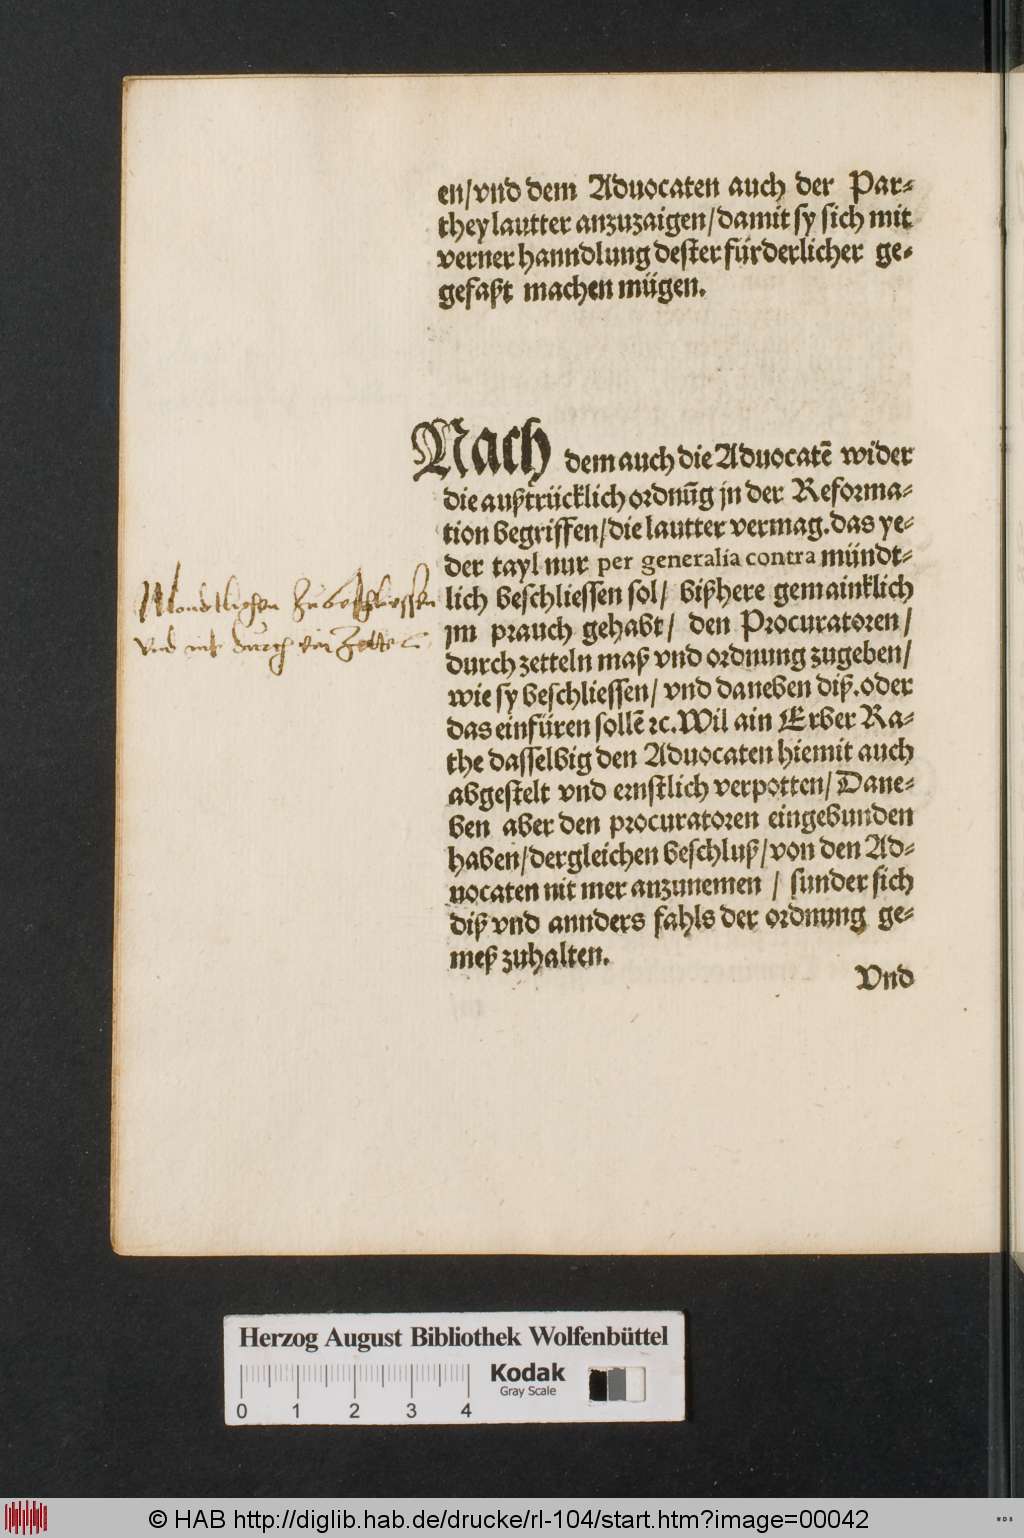 en/vnd dem Aduocaten auch der Par-
they lautter anzuzaigen/damit sy sich mit
verner hanndlung dester fürderlicher ge-
gefaßt machen mügen.
Nach dem auch die Aduocatē wider
die außtrücklich ordnūg jn der Reforma-
tion begriffen/die lautter vermag.das ye-
der tayl nur per generalia contra mündt-
lich beschliessen sol/ bißhere gemainklich
jm prauch gehabt/ den Procuratoren/
durch zetteln maß vnd ordnung zugeben/
wie sy beschliessen/ vnd daneben diß.oder
das einfüren sollē ꝛc.Wil ain Erber Ra-
the dasselbig den Aduocaten hiemit auch
abgestelt vnd ernstlich verpotten/ Dane-
ben aber den procuratoren eingebunden
haben/dergleichen beschluß/von den Ad-
uocaten nit mer anzunemen / sunder sich
diß vnd annders fahls der ordnung ge-
meß zuhalten.
Vnd
Mondtlichen zubeschliessen
vnd nit durch ein Zettel
Herzog August Bibliothek Wolfenbüttel
Kodak
Gray Scale
0 1 2 3 4
© HAB http://diglib.hab.de/drucke/rl-104/start.htm?image=00042